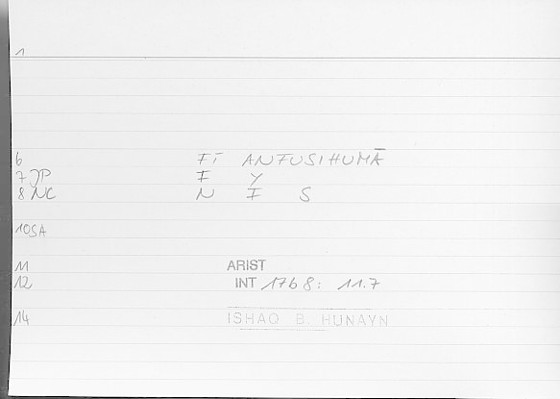 1
6 FĪ ANFUSIHUMĀ
7 JP I Y
8 NC N I S
10 SA
11 ARIST
12 INT 1768: 11.7
14 ISHAQ B. HUNAYN